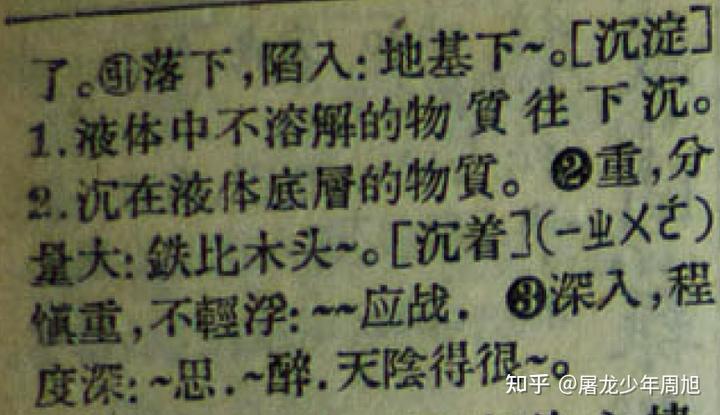 了。㊁落下,陷入:地基下~。[沉淀]
1.液体中不溶解的物質往下沉。
2.沉在液体底層的物質。❷重,分
量大:鉄比木头~。[沉着](-ㄓㄨㄛˊ)
慎重,不輕浮:~~应战. ❸深入,程
度深:~思.~醉.天陰得很~。
知乎 @屠龙少年周旭